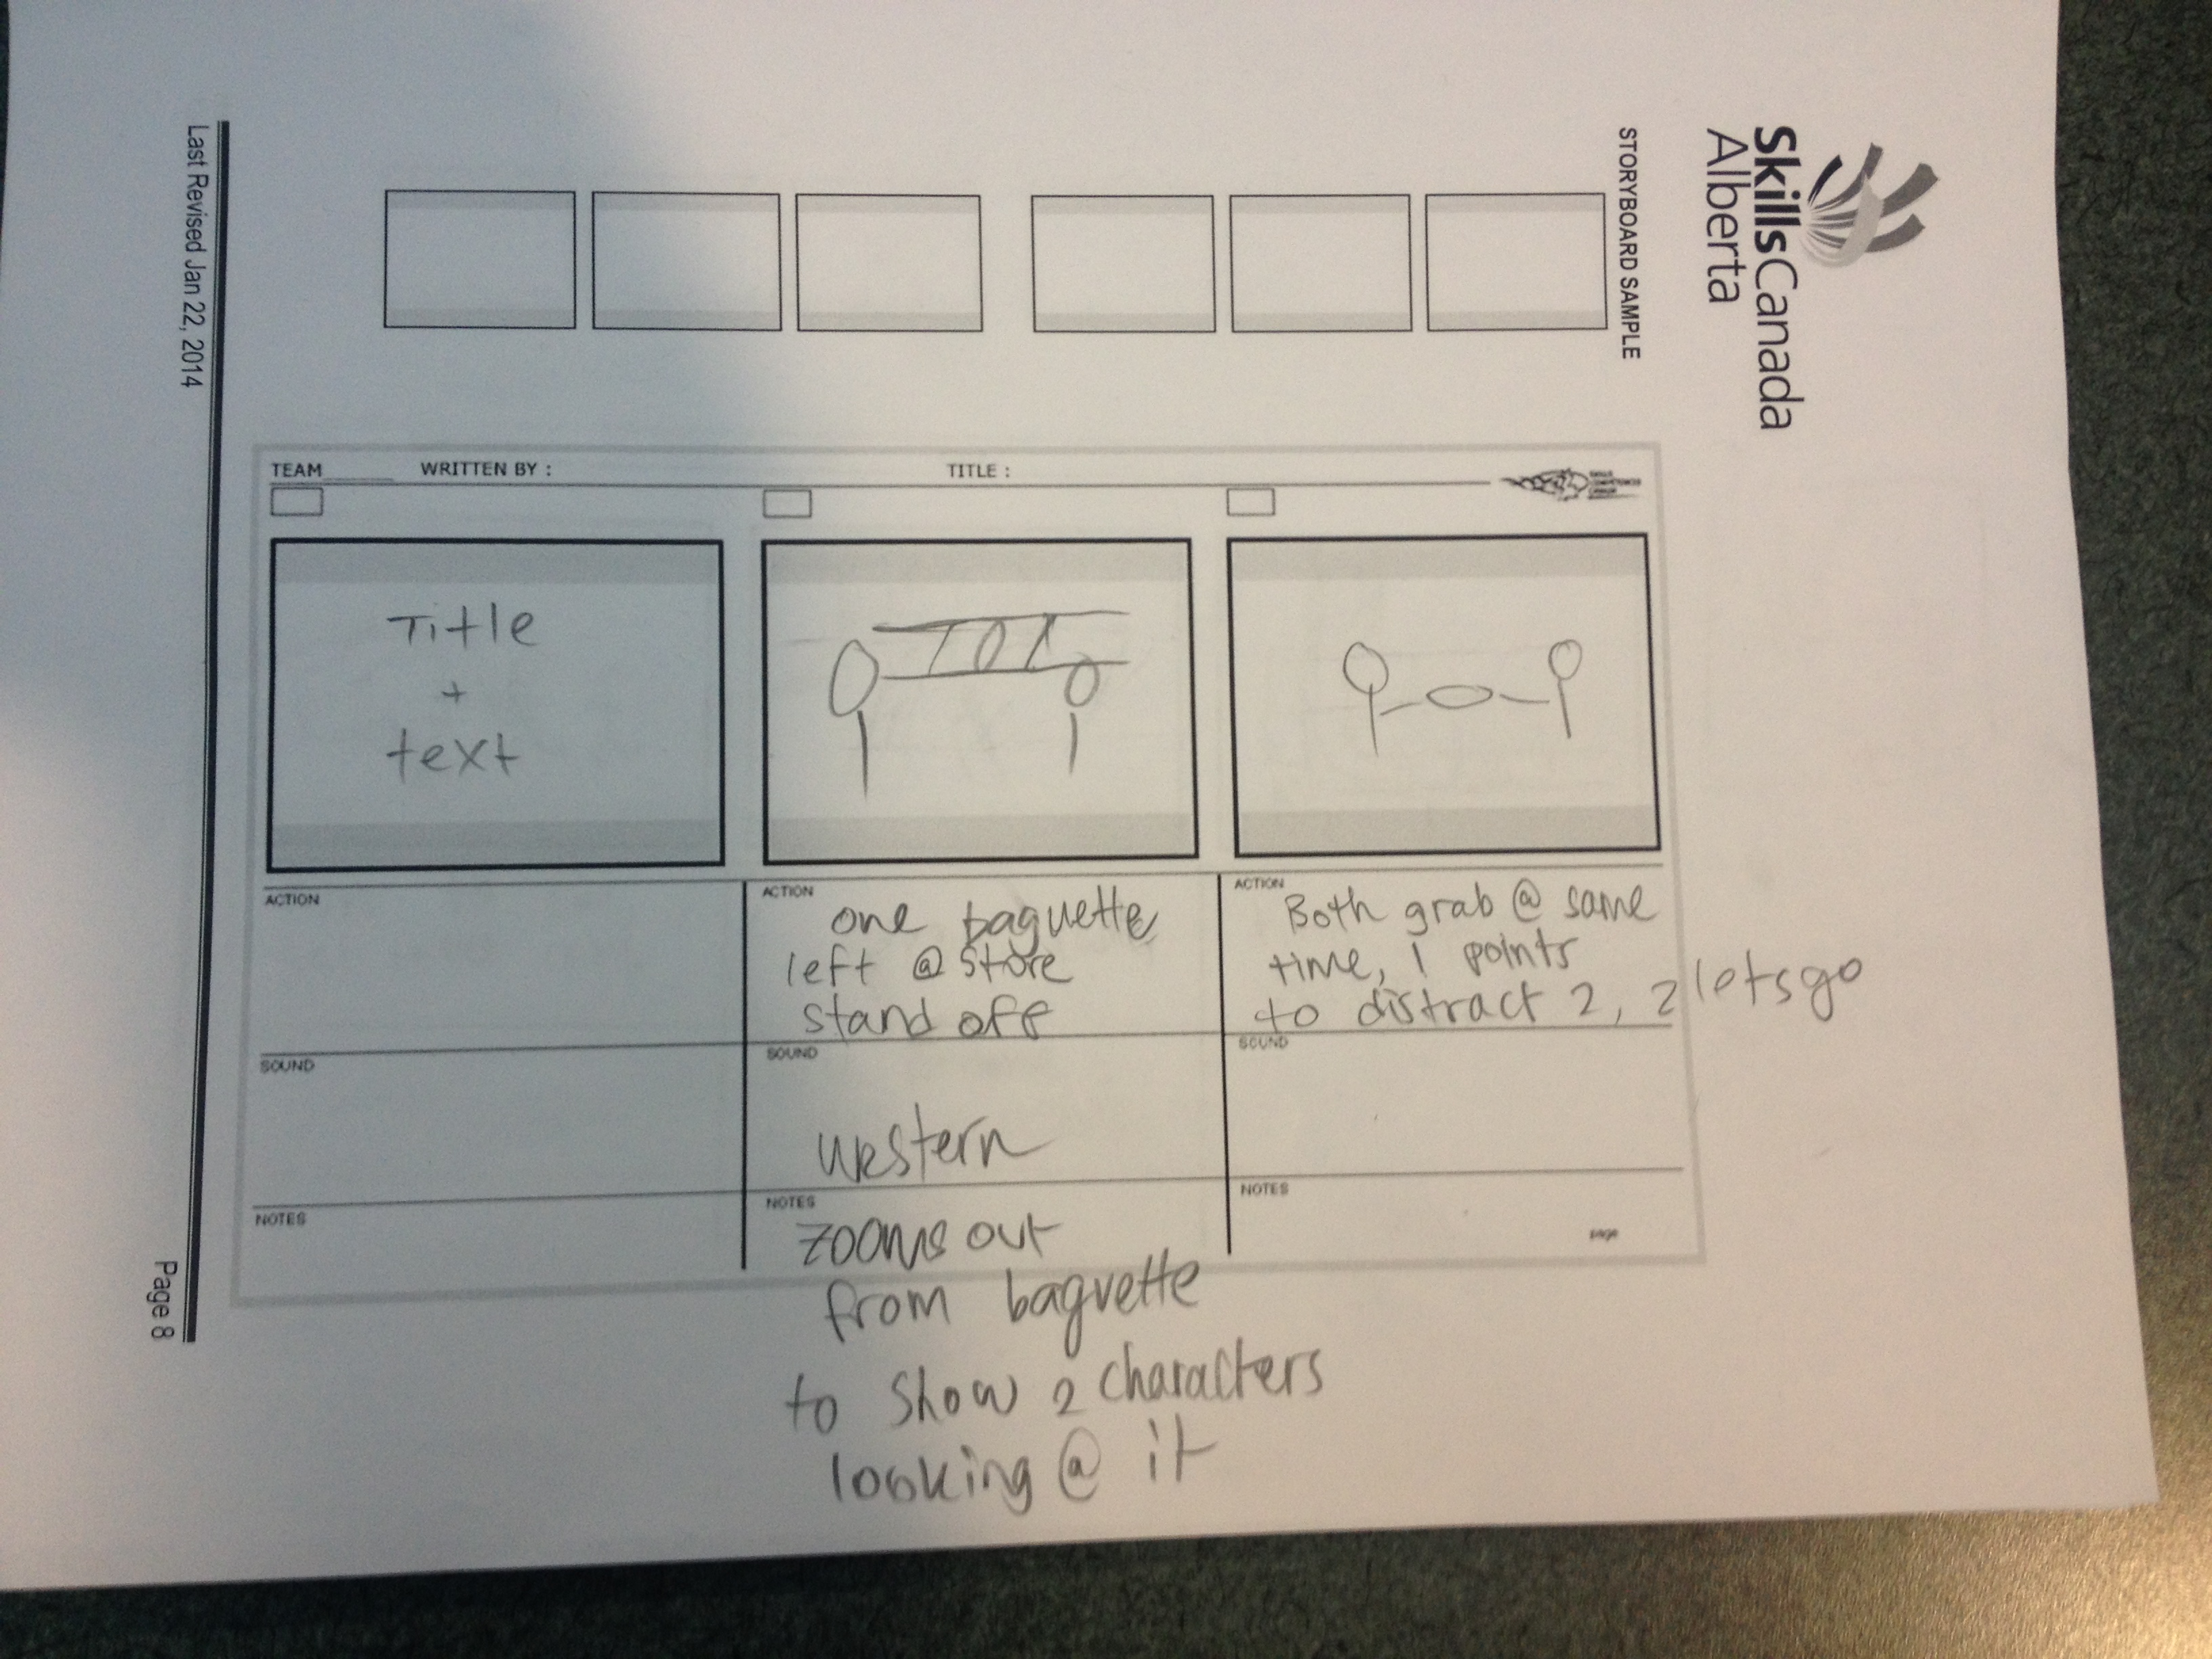 SkillsCanada
Alberta
STORYBOARD SAMPLE
TEAM______ WRITTEN BY : TITLE :
Title
+
text
ACTION
SOUND
NOTES
ACTION
one baguette
left @ store
stand off
SOUND
western
NOTES
zooms out
from baguette
to show 2 characters
looking @ it
ACTION
Both grab @ same
time, 1 points
to distract 2, 2 lets go
SOUND
NOTES
page
Last Revised Jan 22, 2014
Page 8